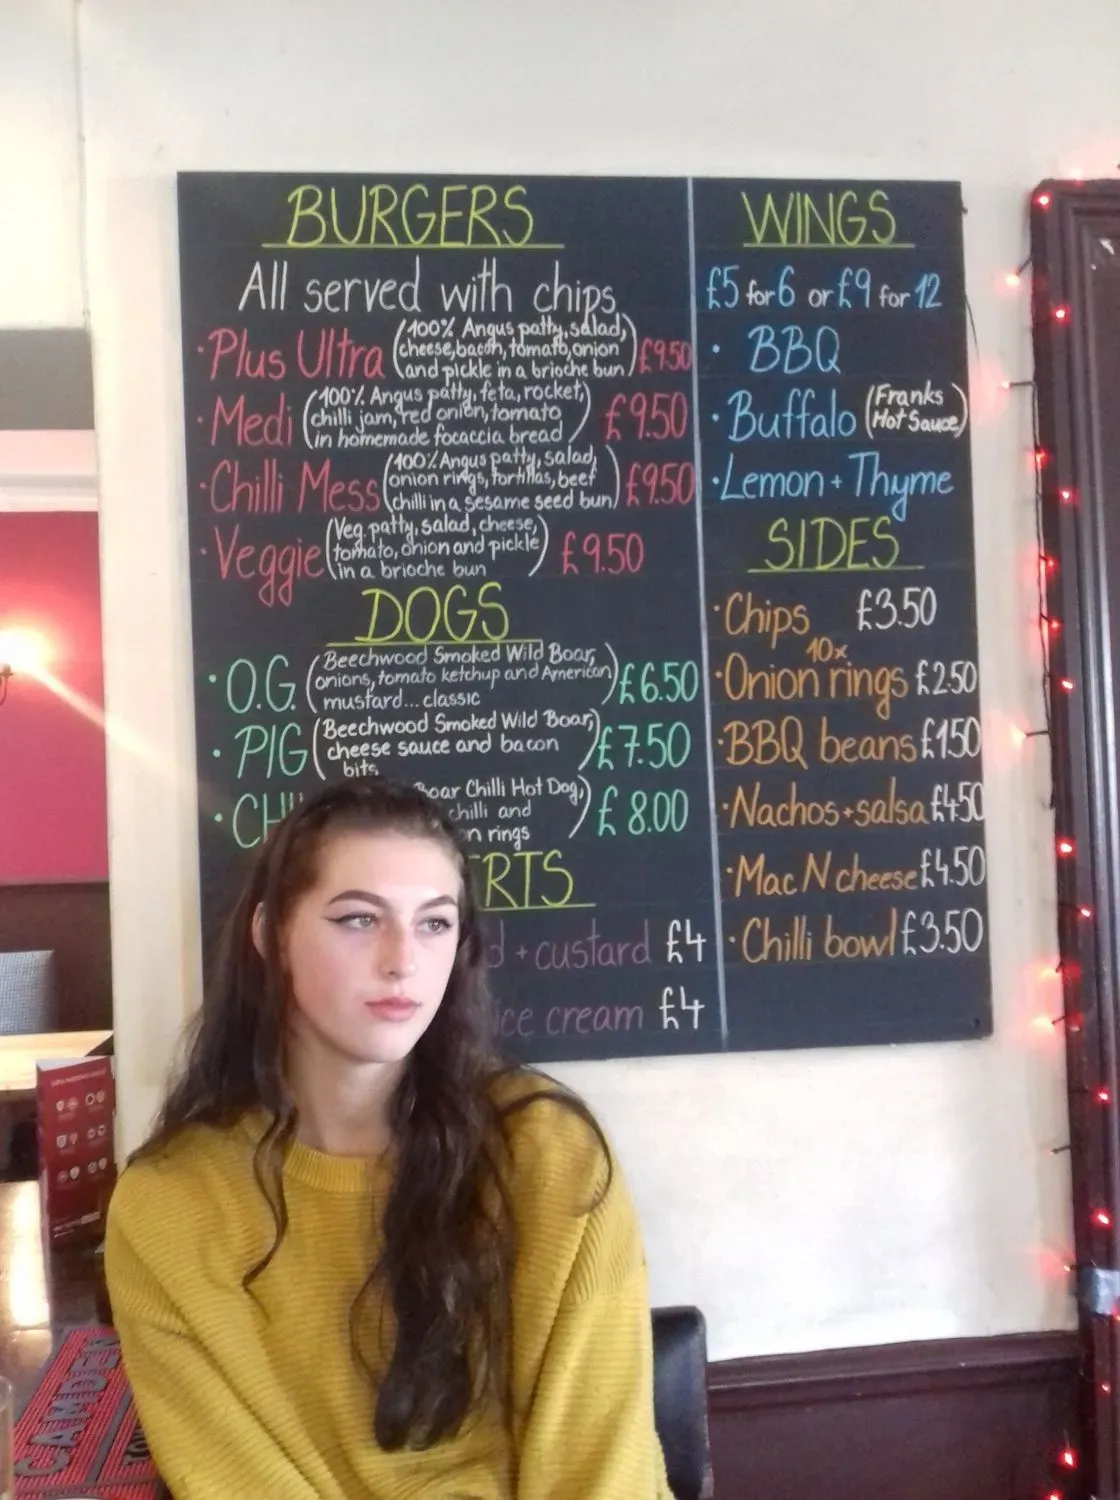 BURGERS
All served with chips
· Plus Ultra (100% Angus patty, salad, cheese, bacon, tomato, onion and pickle in a brioche bun) £9.50
· Medi (100% Angus patty, feta, rocket, chilli jam, red onion, tomato in homemade focaccia bread) £9.50
· Chilli Mess (100% Angus patty, salad, onion rings, tortillas, beef chilli in a sesame seed bun) £9.50
· Veggie (Veg patty, salad, cheese, tomato, onion and pickle in a brioche bun) £9.50
DOGS
· O.G. (Beechwood Smoked Wild Boar, onions, tomato ketchup and American mustard... classic) £6.50
· PIG (Beechwood Smoked Wild Boar, cheese sauce and bacon bits) £7.50
· CHI Boar Chilli Hot Dog, chilli and on rings) £8.00
ERTS
d + custard £4
ice cream £4
WINGS
£5 for 6 or £9 for 12
· BBQ
· Buffalo (Franks Hot Sauce)
· Lemon + Thyme
SIDES
· Chips £3.50
10x
· Onion rings £2.50
· BBQ beans £1.50
· Nachos + salsa £4.50
· Mac N cheese £4.50
· Chilli bowl £3.50
CAMDEN